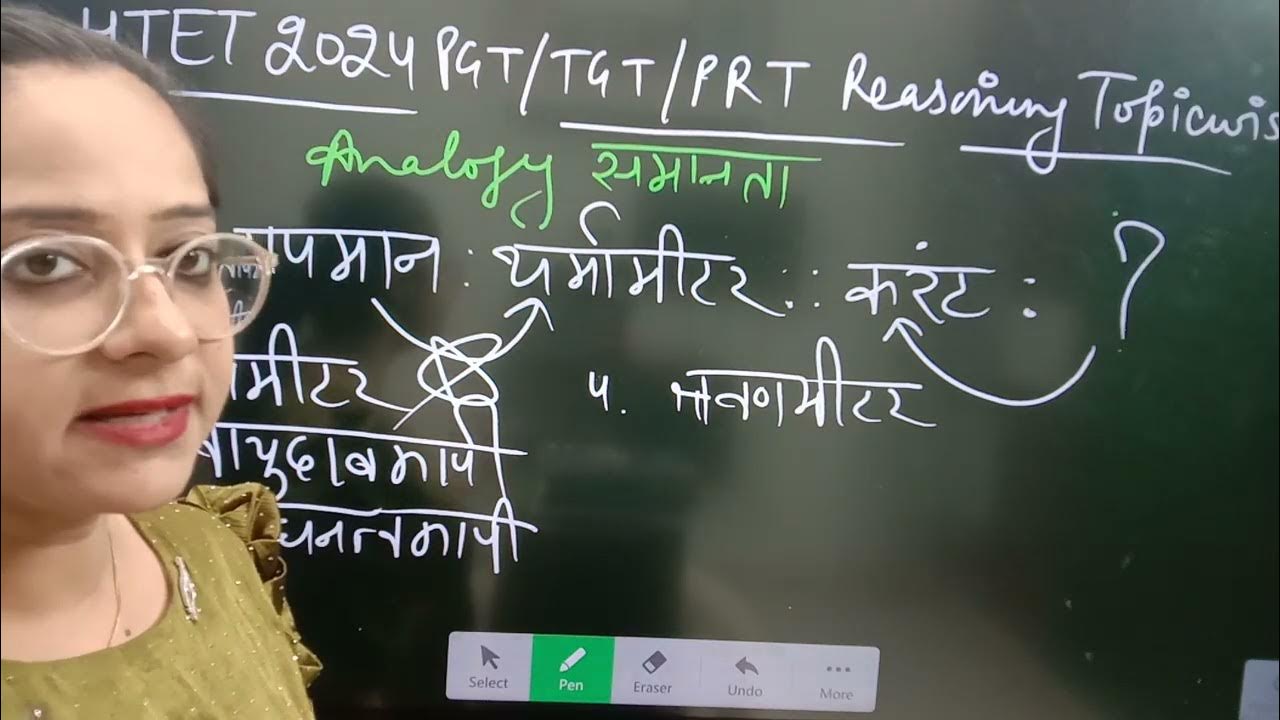 HTET 2024 PGT/TGT/PRT Reasoning Topicwis
Analogy समानता
तापमान : थर्मामीटर :: करंट : ?
मीटर 4. लवणमीटर
वायुदाबमापी
घनत्वमापी
Select Pen Eraser Undo More